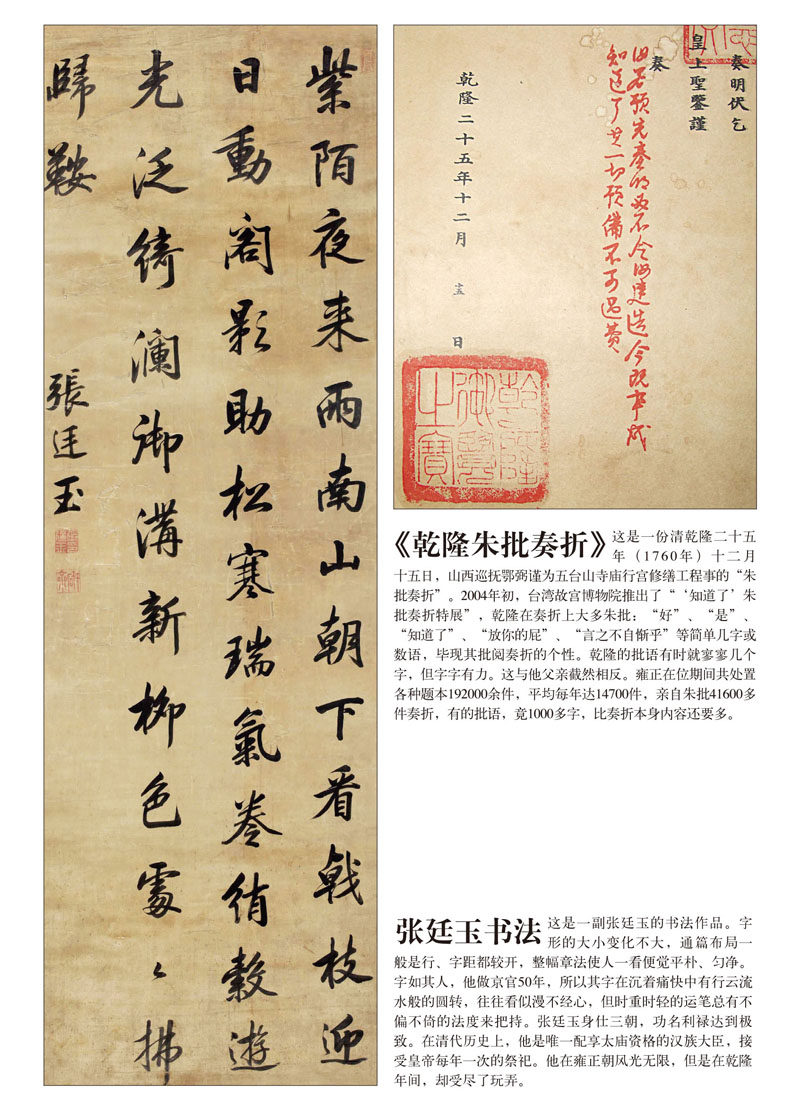 紫陌夜来雨南山朝下看戟枝迎
日動閣影助松寒瑞氣卷綃縠遊
光泛綺瀾御溝新柳色處々拂
歸鞍
張廷玉
奏明伏乞
皇上聖鑒謹
奏
若預先奏明 不令 建造今既 成
知道了其一切預備不可過費
乾隆二十五年十二月 十五 日
乾隆御覽之寶
《乾隆朱批奏折》这是一份清乾隆二十五
年（1760年）十二月
十五日，山西巡抚鄂弼谨为五台山寺庙行宫修缮工程事的“朱
批奏折”。2004年初，台湾故宫博物院推出了“‘知道了’朱
批奏折特展”，乾隆在奏折上大多朱批：“好”、“是”、
“知道了”、“放你的屁”、“言之不自惭乎”等简单几字或
数语，毕现其批阅奏折的个性。乾隆的批语有时就寥寥几个
字，但字字有力。这与他父亲截然相反。雍正在位期间共处置
各种题本192000余件，平均每年达14700件，亲自朱批41600多
件奏折，有的批语，竟1000多字，比奏折本身内容还要多。
张廷玉书法 这是一副张廷玉的书法作品。字
形的大小变化不大，通篇布局一
般是行、字距都较开，整幅章法使人一看便觉平朴、匀净。
字如其人，他做京官50年，所以其字在沉着痛快中有行云流
水般的圆转，往往看似漫不经心，但时重时轻的运笔总有不
偏不倚的法度来把持。张廷玉身仕三朝，功名利禄达到极
致。在清代历史上，他是唯一配享太庙资格的汉族大臣，接
受皇帝每年一次的祭祀。他在雍正朝风光无限，但是在乾隆
年间，却受尽了玩弄。